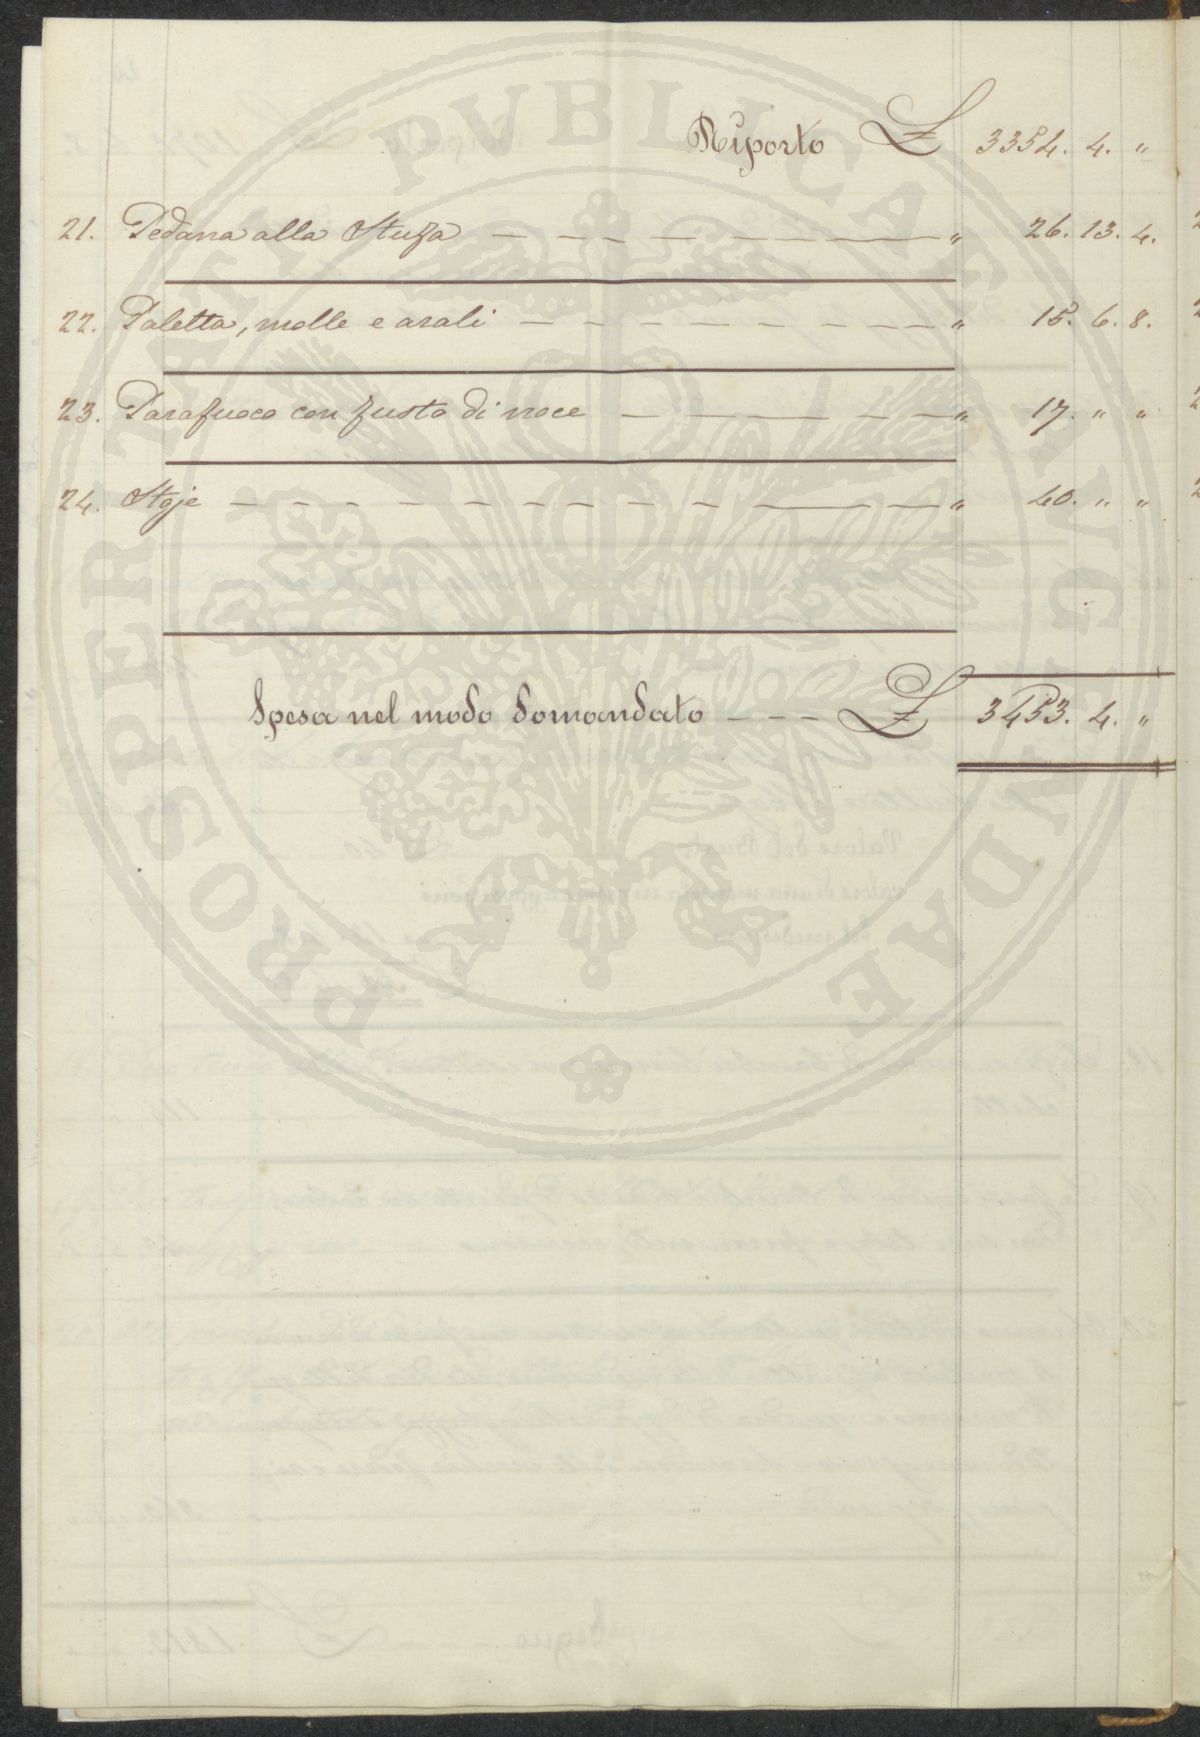 PROSPERITATI PVBLICAE AVGENDAE
Riporto £ 3354. 4. "
21. Pedana alla Stufa — — — — " 26. 13. 4.
22. Paletta, molle e arali — — — — " 15. 6. 8.
23. Parafuoco con fusto di noce — — — — " 17. " "
24. Stoje — — — — " 40. " "
Spesa nel modo domandato — — — £ 3453. 4. "